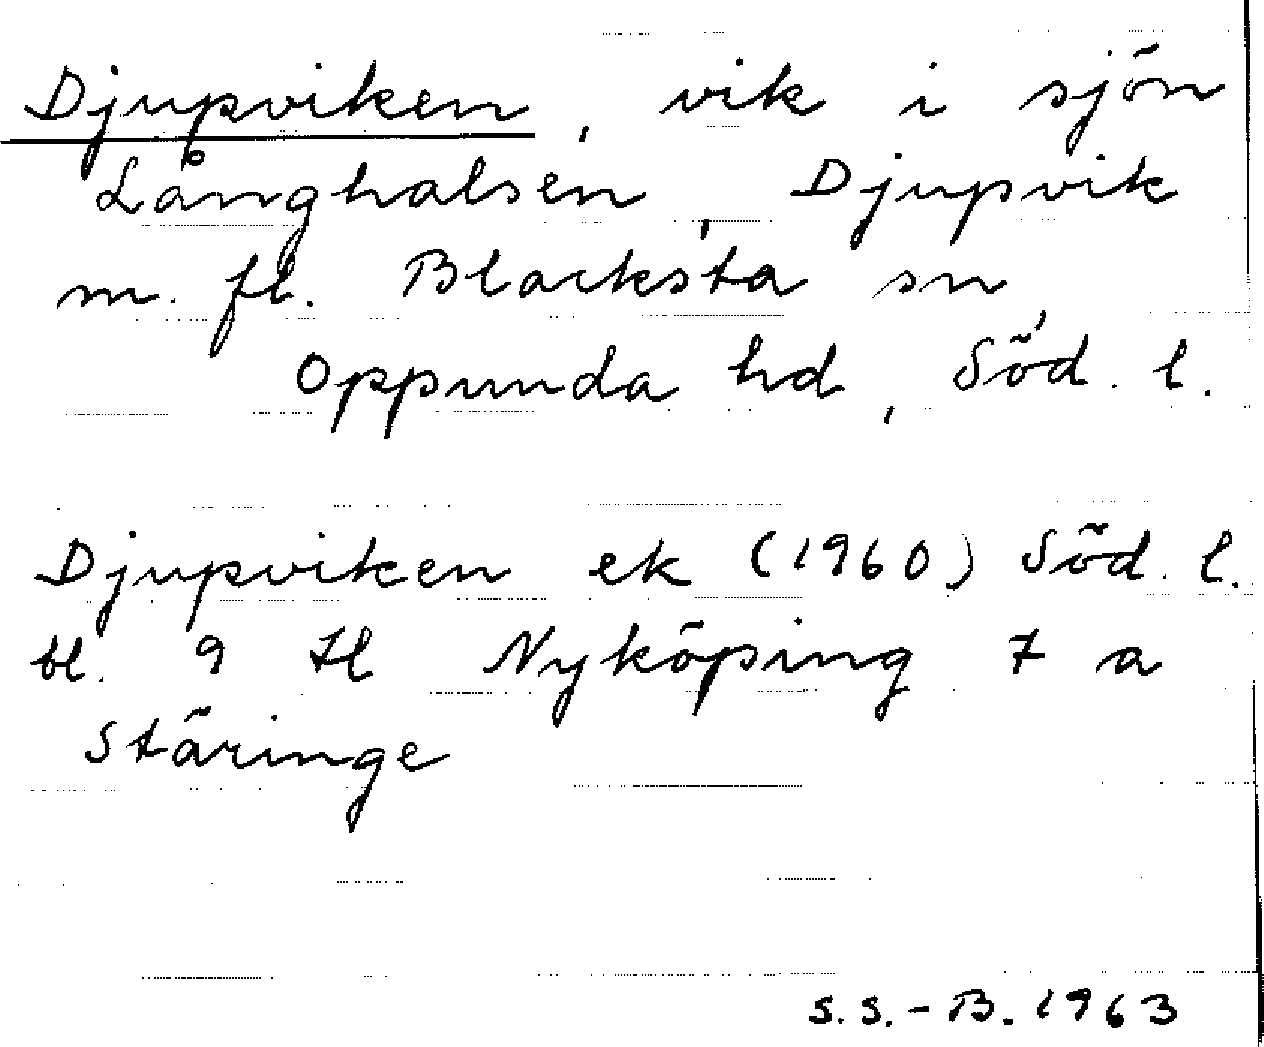 Djupviken, vik i sjön
Långhalsen, Djupvik
m. fl. Blacksta sn,
Oppunda hd, Söd. l.
Djupviken ek (1960) Söd. l.
bl. 9 tl Nyköping 7 a
Stäringe
S.S.-B. 1963